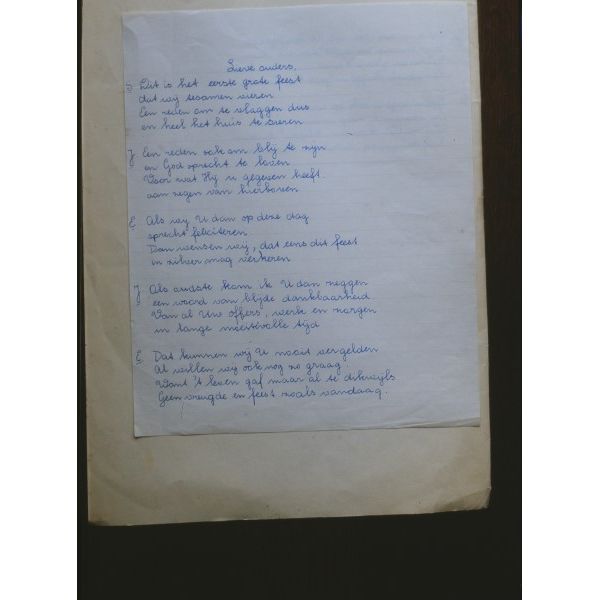 Lieve ouders,
J Dit is het eerste grote feest
dat wij tesamen vieren
Een reden om te vlaggen dus
en heel het huis te sieren
J Een reden ook om blij te zijn
en God oprecht te loven
Voor wat Hij u gegeven heeft
aan zegen van hierboven
E Als wij U dan op deze dag
oprecht feliciteren
Dan wensen wij, dat eens dit feest
in zilver mag verkeren
J Als oudste kom ik U dan zeggen
een woord van blijde dankbaarheid
Van al Uw offers, werk en zorgen
in lange moeitevolle tijd
E Dat kunnen wij U nooit vergelden
Al willen wij ook nog zo graag
Want 't leven gaf maar al te dikwijls
Geen vreugde en feest zoals vandaag.